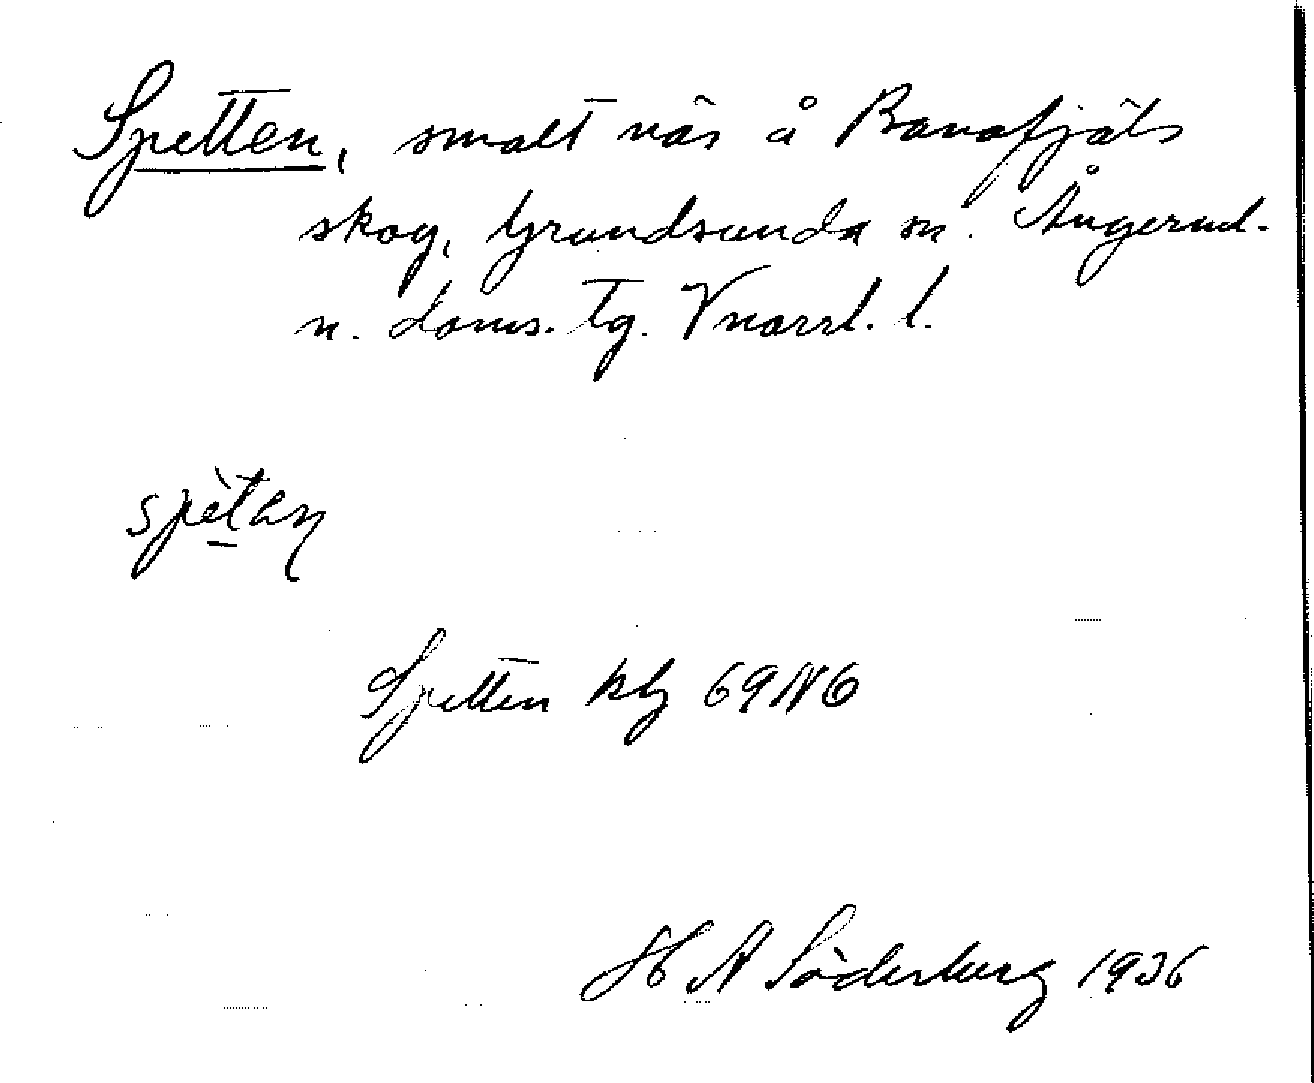 Spetten, smalt näs å Banafjäls
skog, Grundsunda sn. Ångerml.
n. doms. tg. Vnorrl. l.
spètən
Spetten kbg 69N6
H A Söderberg 1936